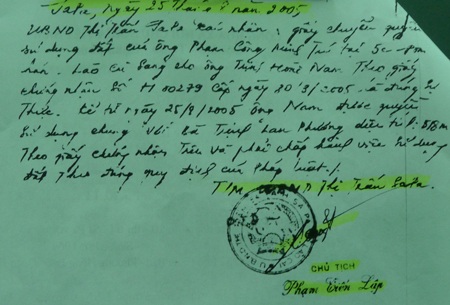 SaPa, ngày 25 tháng 8 năm 2005,
UBND Thị Trấn SaPa xác nhận: giấy chuyển quyền
sử dụng đất của Ông Phan Công Minh Trú tại
Lào Cai Sang cho ông Trần Hồng Nam. Theo giấy
chứng nhận Số H 00279 Cấp ngày 2005 là đúng Sự
Thực. Kể từ ngày 25/8/2005 Ông Nam được quyền
Sử dụng chung với bà Trịnh Lan Phương diện tích:
Theo giấy chứng nhận Trên và phải chấp hành việc Sử dụng
đất theo đúng quy định của Pháp luật./.
T/m UBND Thị Trấn SaPa.
CHỦ TỊCH
Phạm Tiến Lập